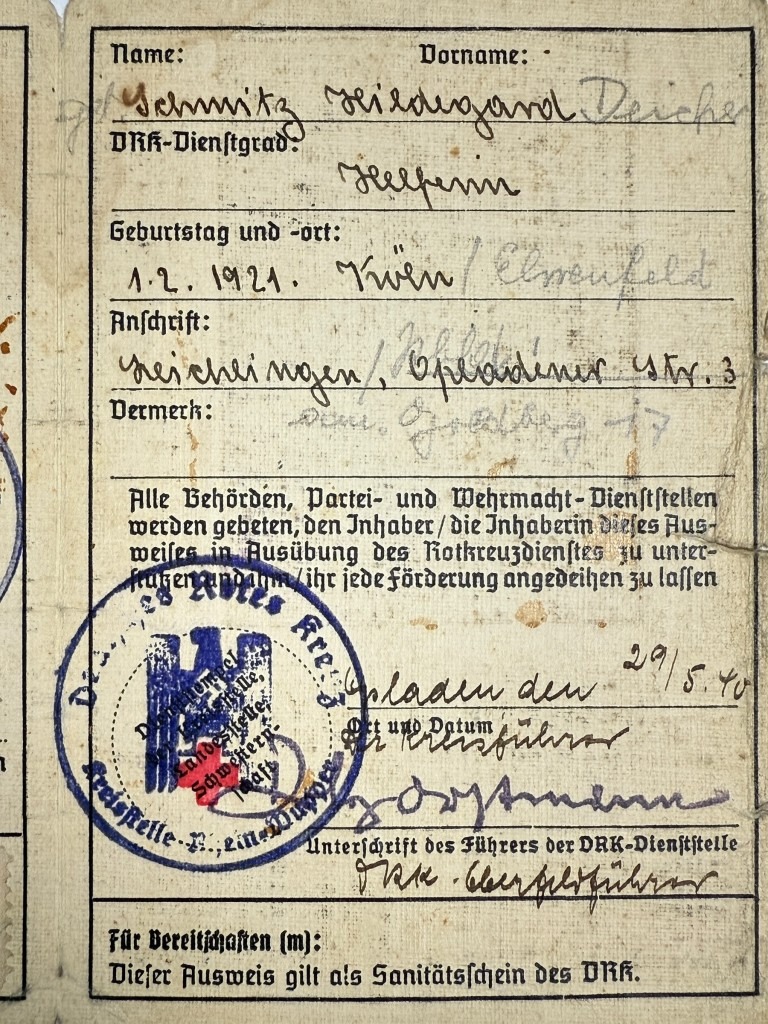 Name: Vorname:
geb. Schmitz Hildegard
DRK-Dienstgrad:
Helferin
Geburtstag und -ort:
1.2. 1921. Köln /
Anschrift:
Leichlingen /, Opladener Str. 3
Vermerk:
17
Alle Behörden, Partei- und Wehrmacht-Dienststellen
werden gebeten, den Inhaber / die Inhaberin dieses Aus-
weises in Ausübung des Rotkreuzdienstes zu unter-
stützen und ihm / ihr jede Förderung angedeihen zu lassen
Deutsches Rotes Kreuz
Dienststempel
der Kreisstelle,
Landesstelle,
Schwestern-
schaft
Kreisstelle Rhein-Wupper
Opladen den 29/5.40
Ort und Datum
Der Kreisführer
Unterschrift des Führers der DRK-Dienststelle
DRK-Oberfeldführer
Für Bereitschaften (m):
Dieser Ausweis gilt als Sanitätsschein des DRK.